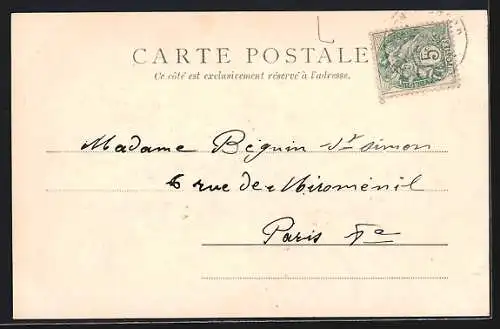 CARTE POSTALE
Ce côté est exclusivement réservé à l'adresse.
5
Madame Béguin St Simon
6 rue de Miroménil
Paris